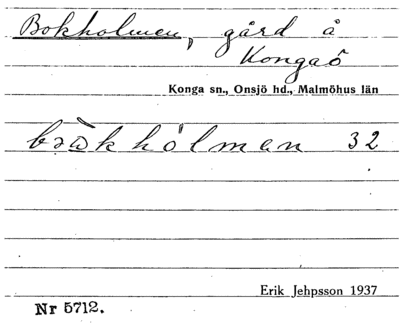 Bokholmen, gård å
Kongaö
Konga sn., Onsjö hd., Malmöhus län
hólmen 32
Erik Jehpsson 1937
Nr 5712.